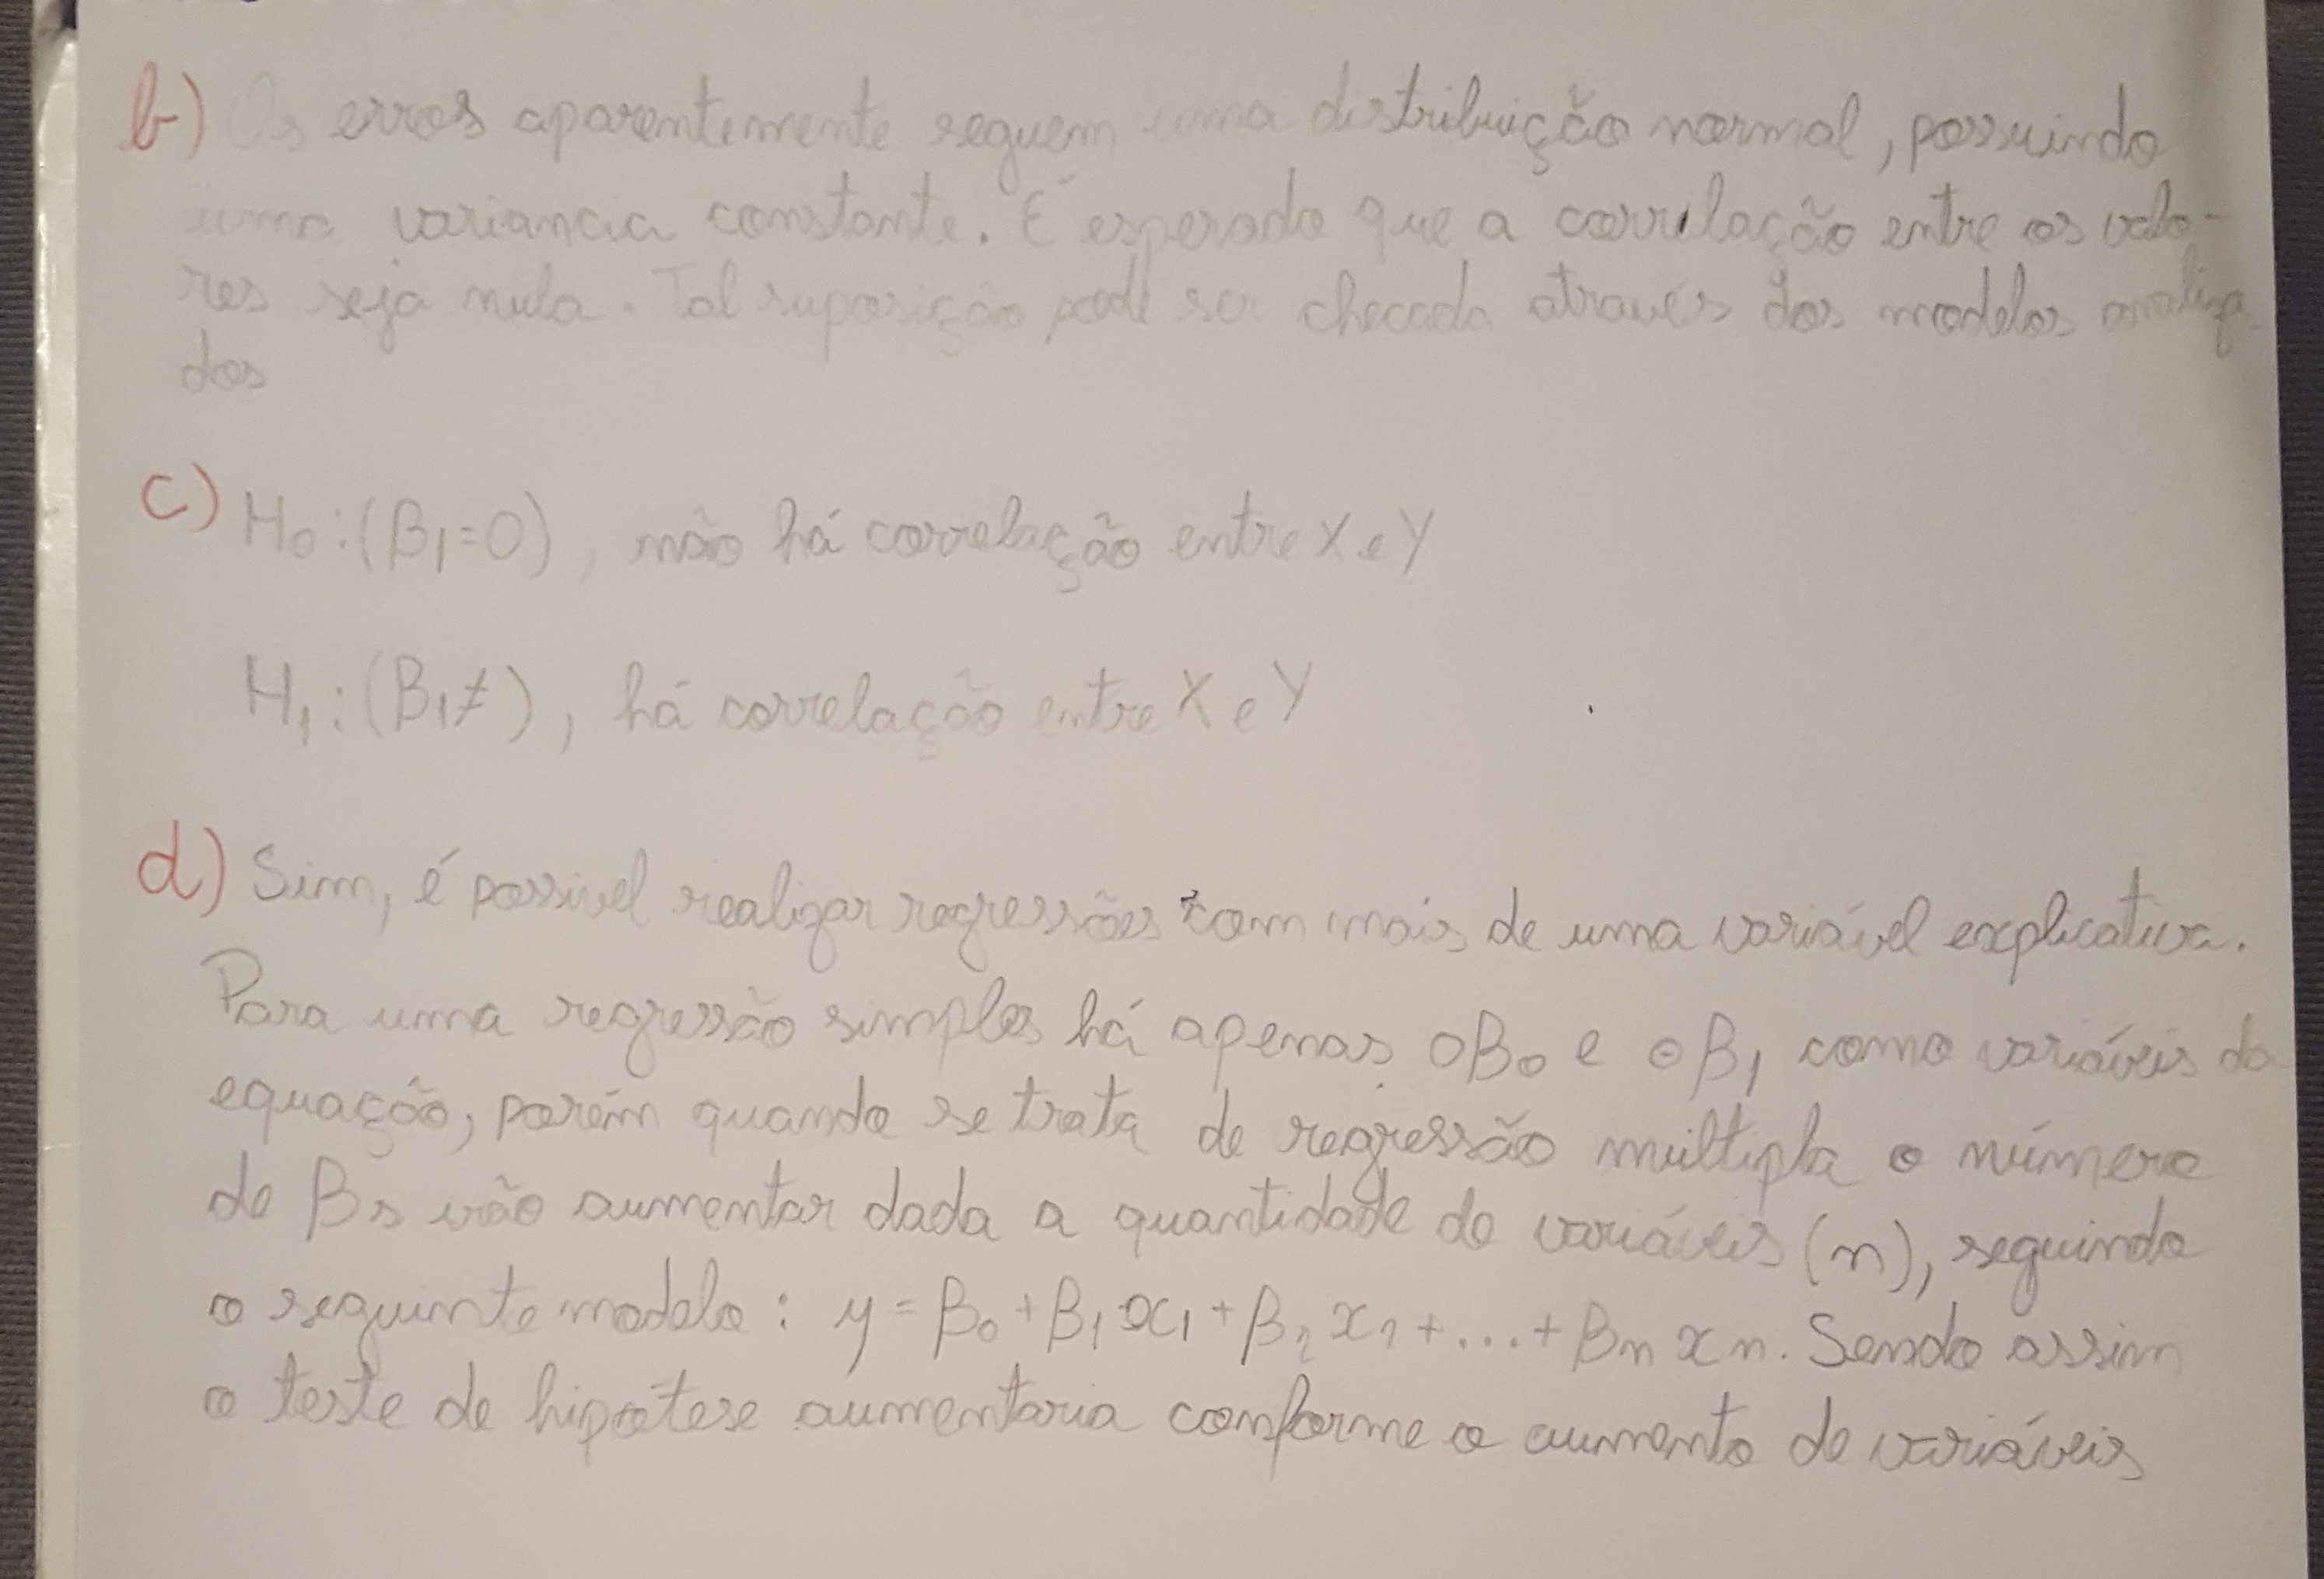 b) Os erros aparentemente seguem uma distribuição normal, possuindo
uma variancia constante. É esperado que a correlação entre os valo-
res seja nula. Tal suposição pode ser checada através dos modelos analiza
dos
c) H0:(β1=0), não há correlação entre X e Y
H1:(β1≠), há correlação entre X e Y
d) Sim, é possivel realizar regressões com mais de uma variável explicativa.
Para uma regressão simples há apenas o β0 e o β1 como variáveis da
equação, porém quando se trata de regressão múltipla o número
de βs irão aumentar dada a quantidade de variáveis (n), seguindo
o seguinte modelo: y = β0 + β1 x1 + β2 x2 + ... + βn xn. Sendo assim
o teste de hipótese aumentaria conforme o aumento de variáveis